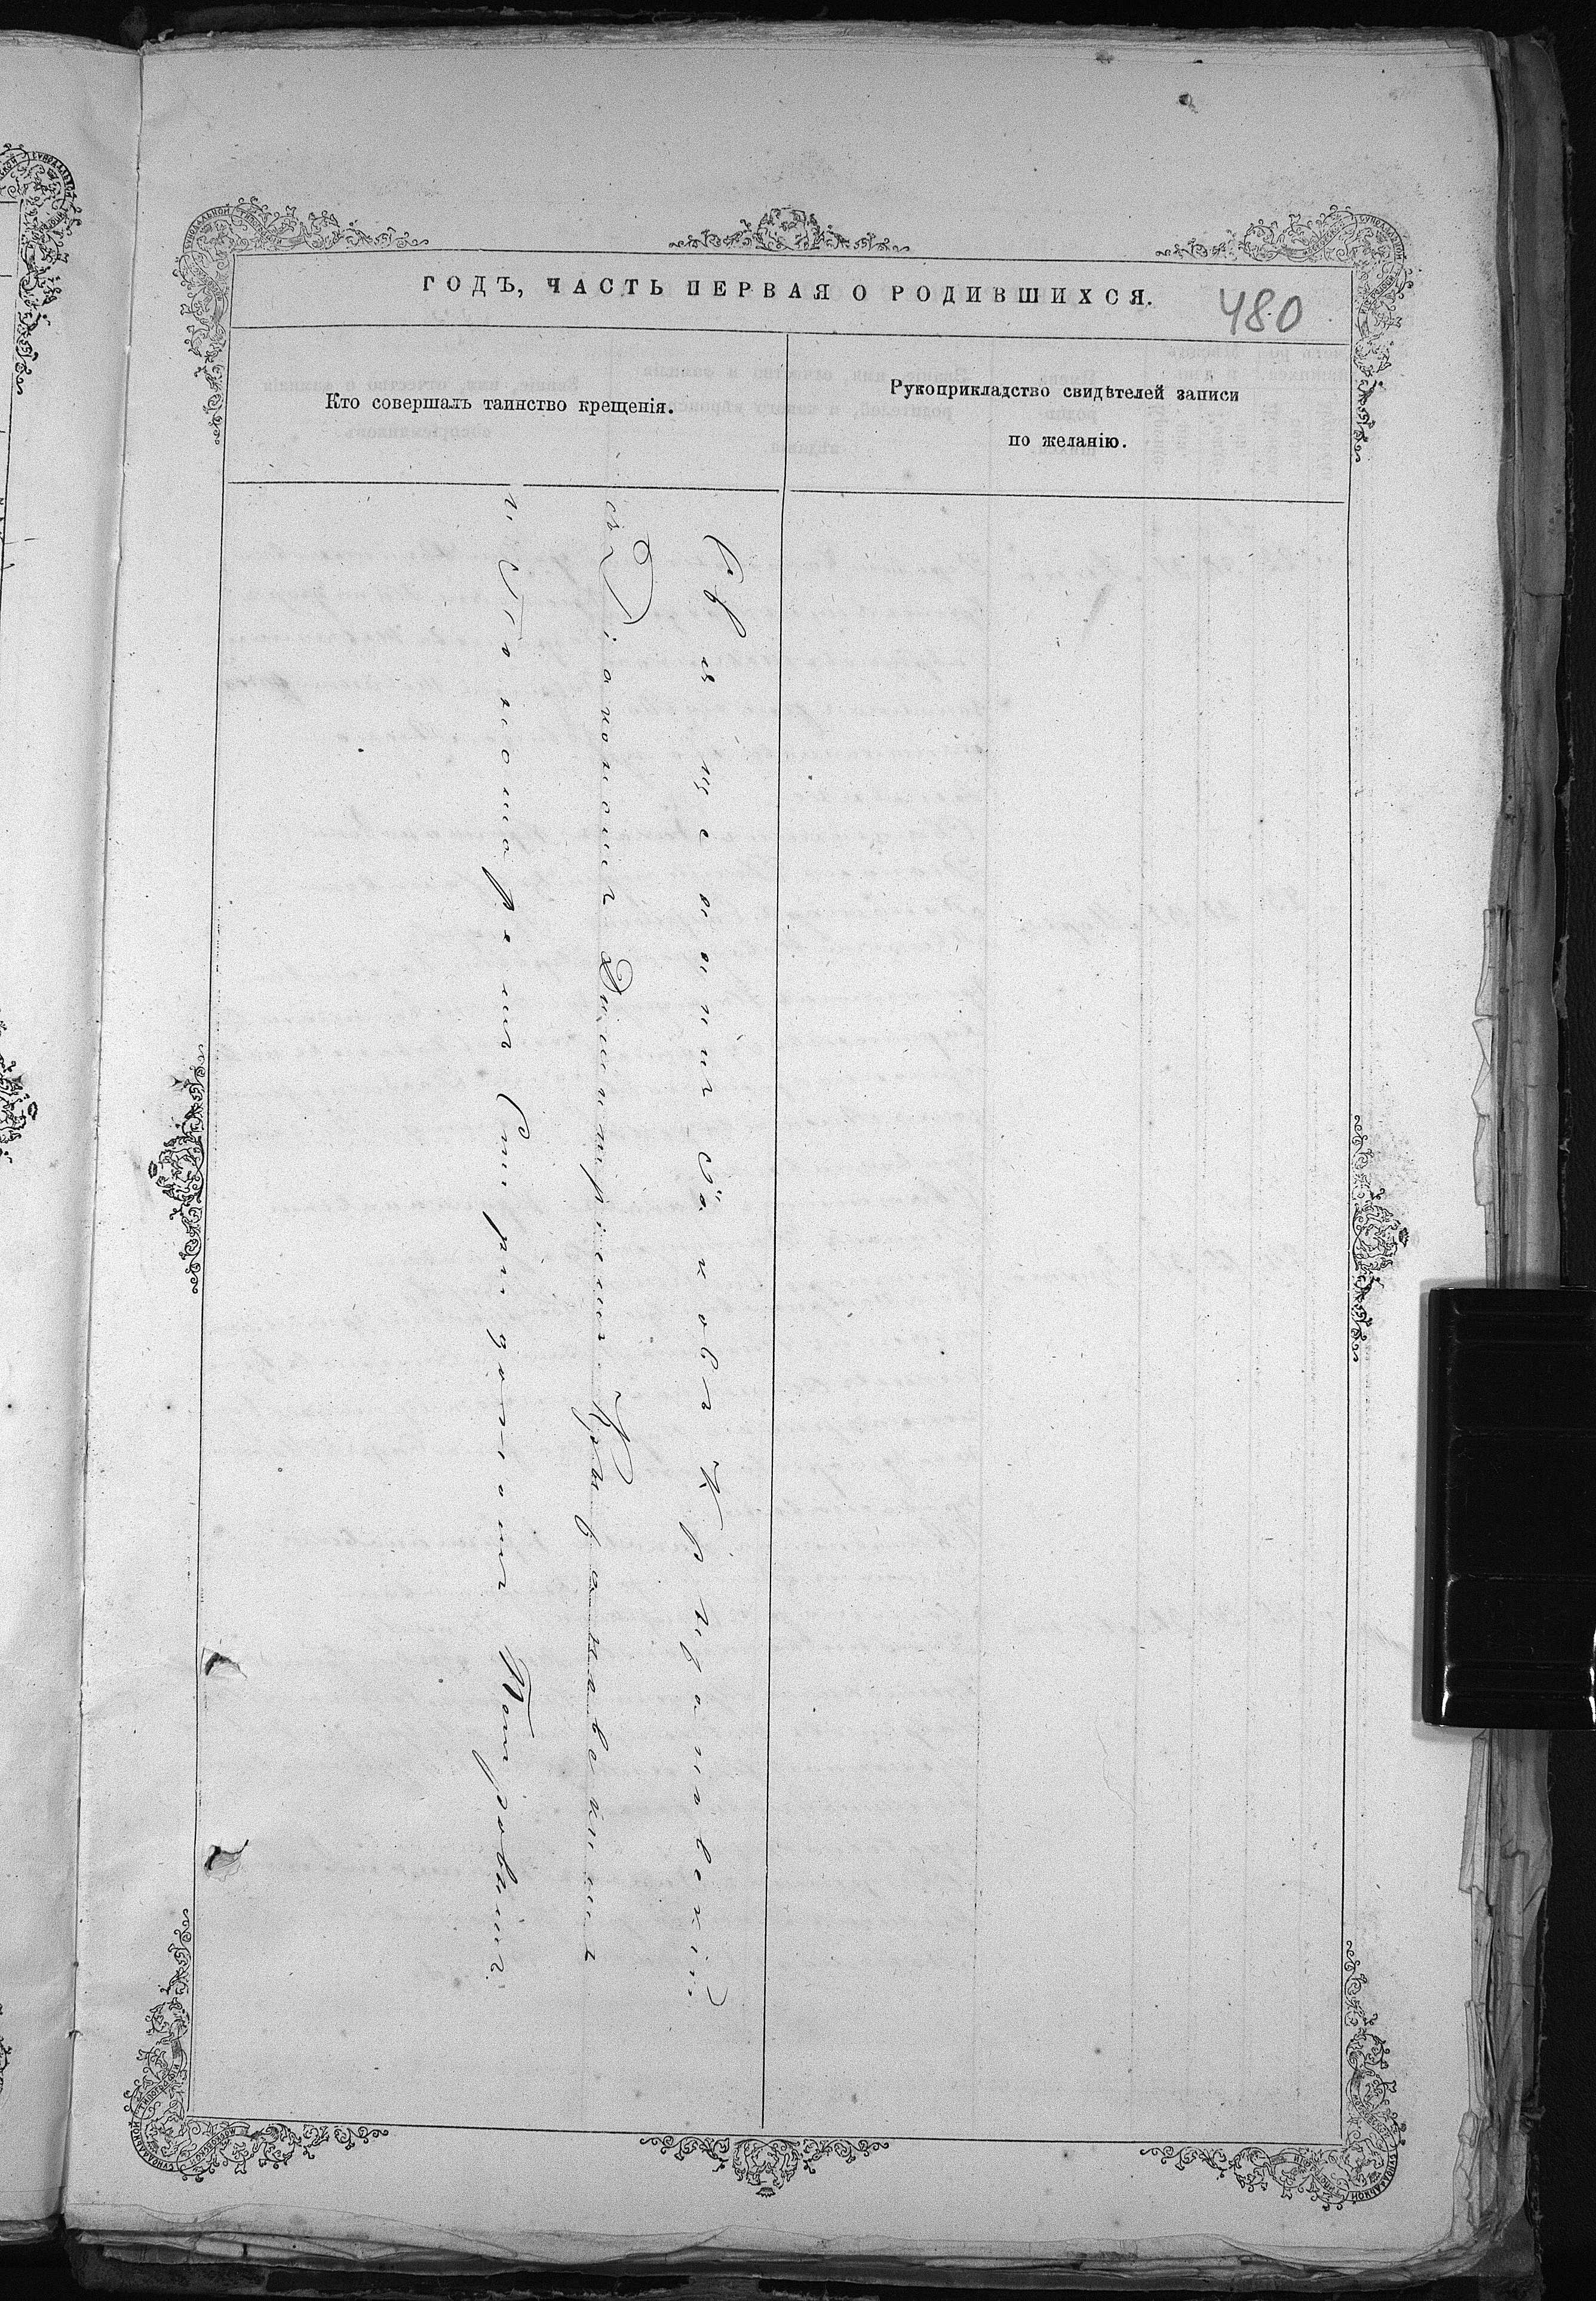 ГОДЪ, ЧАСТЬ ПЕРВАЯ О РОДИВШИХСЯ.
480
Кто совершалъ таинство крещенія.
Рукоприкладство свидѣтелей записи
по желанію.
Священникъ Іаковъ
съ Діакономъ Димитріемъ
и Пономаремъ Спиридономъ Петровымъ